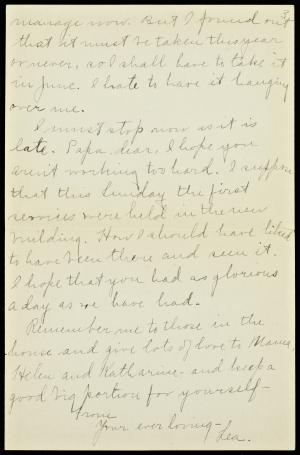 3
manage now. But I found out
that it must be taken this year
or never, so I shall have to take it
in June. I hate to have it hanging
over me.
I must stop now as it is
late. Papa, dear, I hope you
aren't working too hard. I suppose
that this Sunday the first
services were held in the new
building. How I should have liked
to have been there and seen it.
I hope that you had as glorious
a day as we have had.
Remember me to those in the
house and give lots of love to Mama,
Helen and Katharine- and keep a
good big portion for yourself-
From
Your ever loving-
Lea.